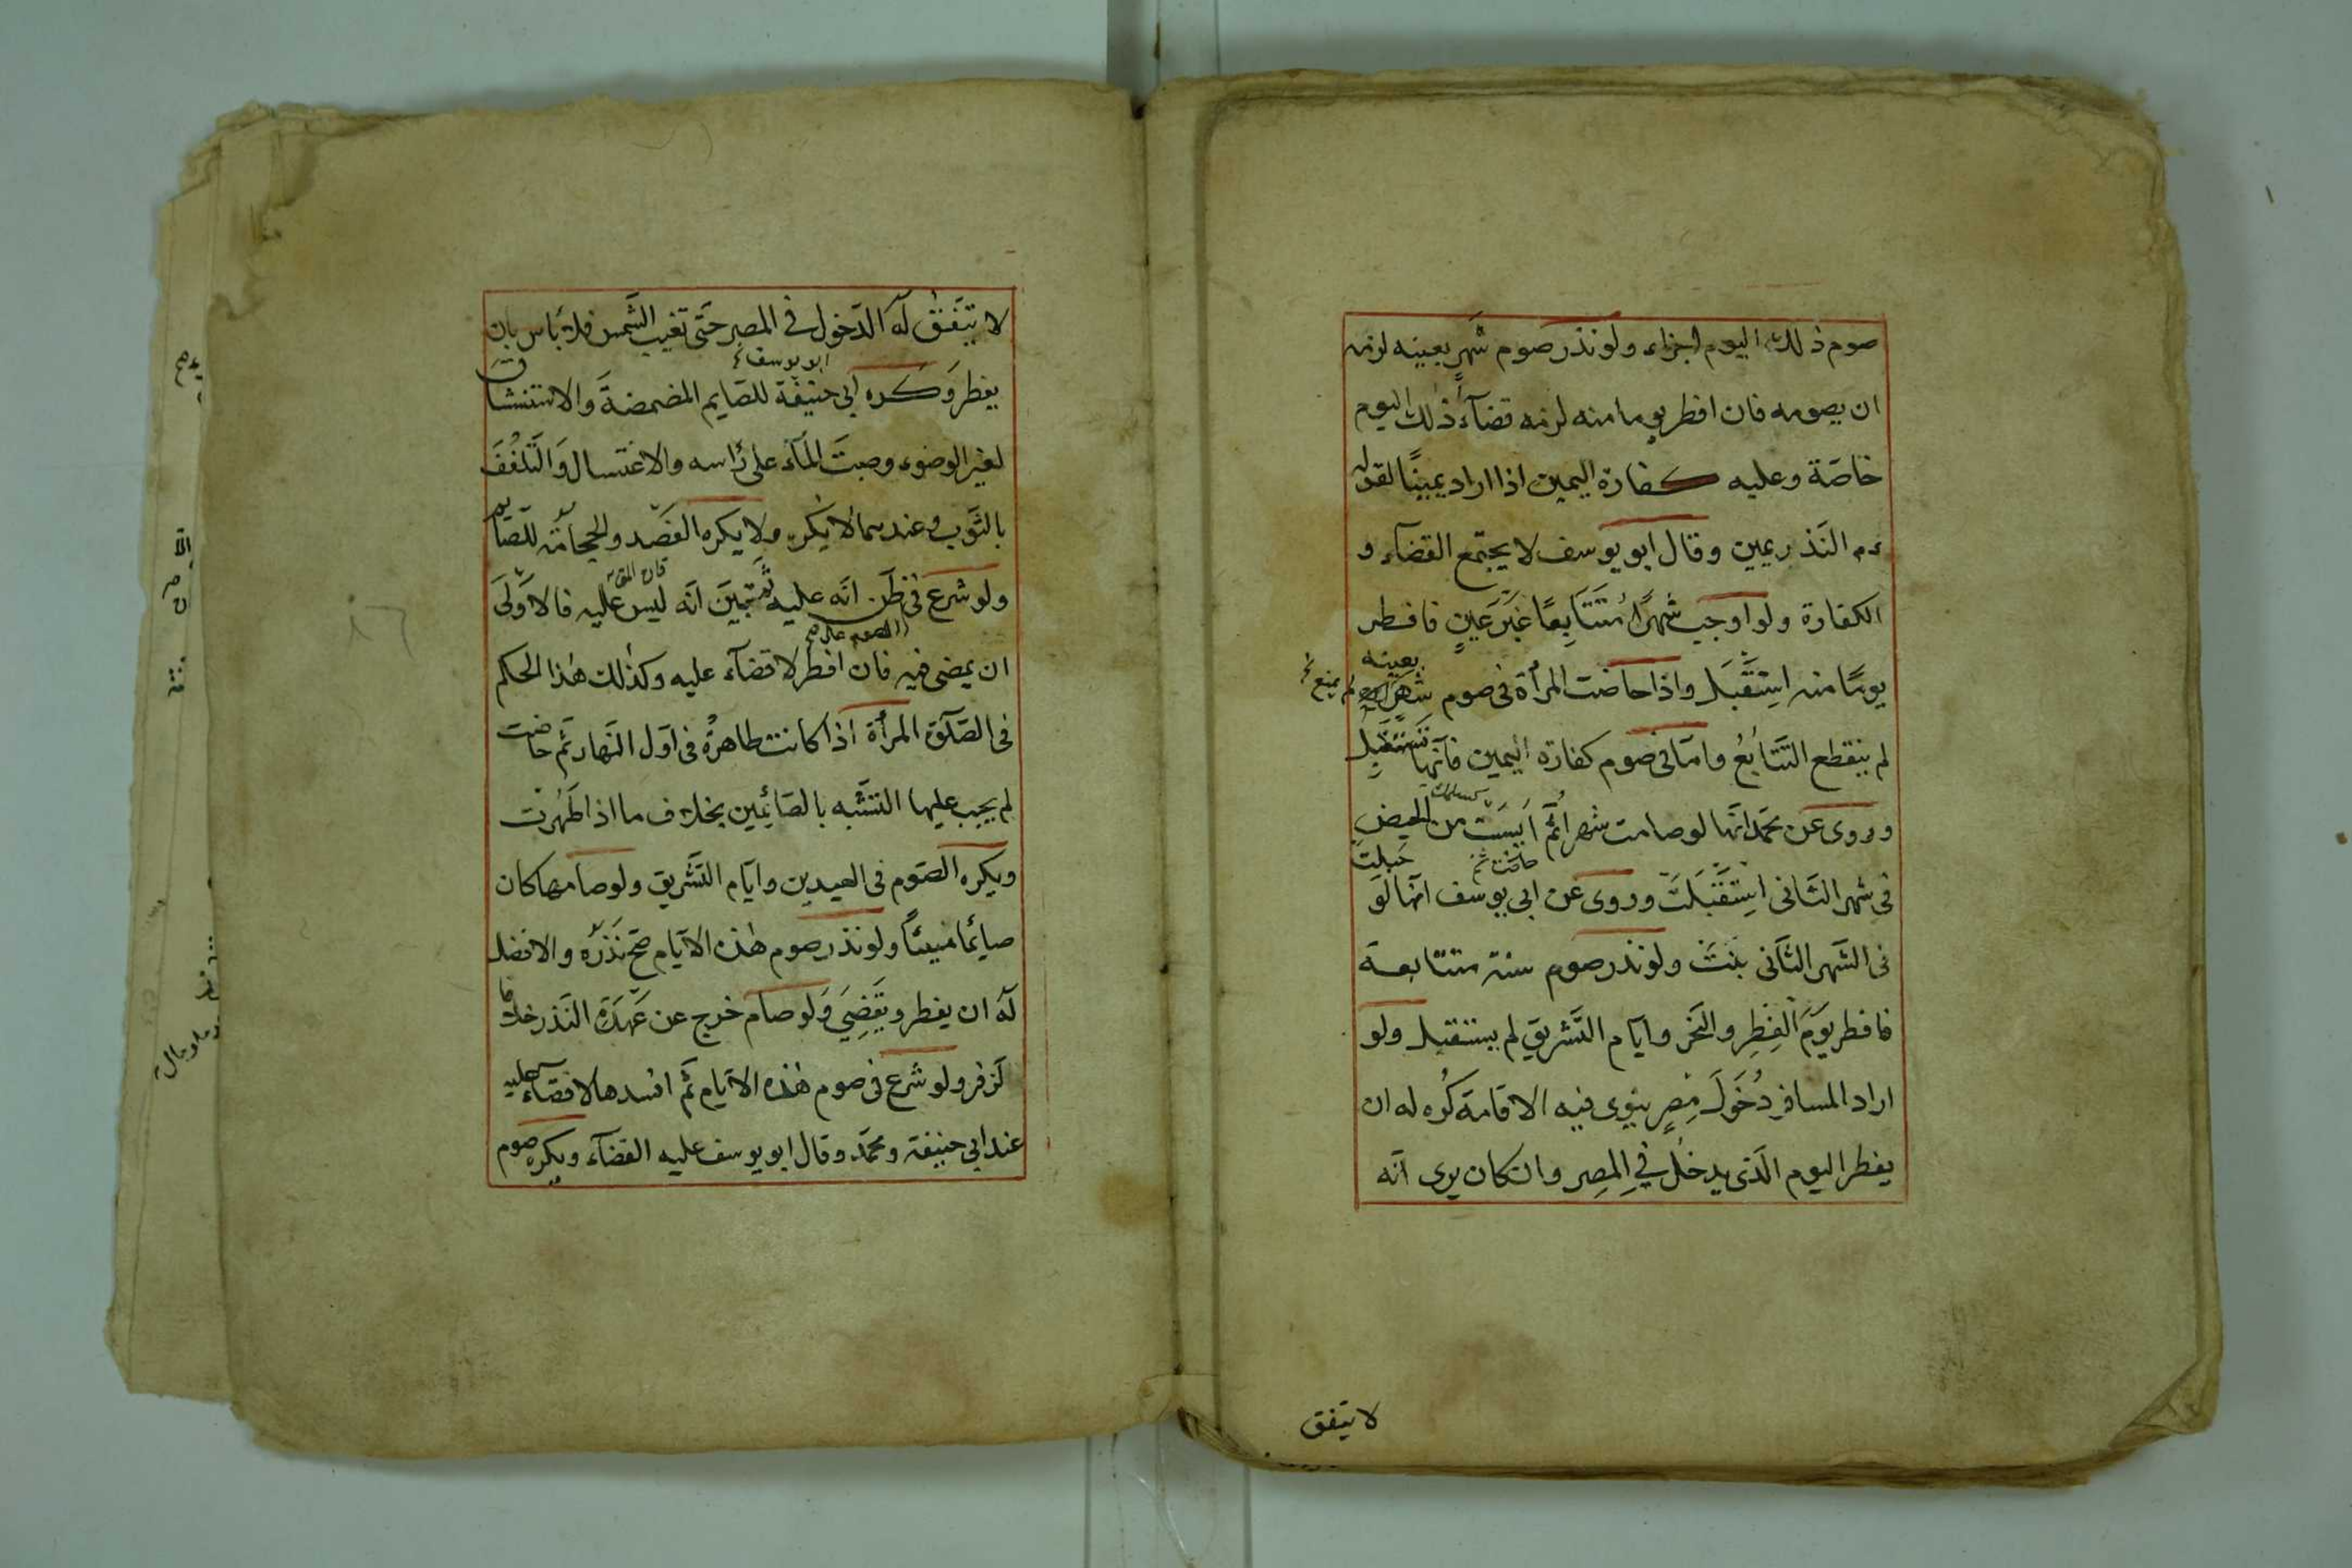 صوم ذلك اليوم اجزاء ولو نذر صوم شهر بعينه لزمه
ان يصومه فان افطر يوما منه لزمه قضآء ذلك اليوم
خاصّة وعليه كفارة اليمين اذا اراد يمينًا لقوله
ءم النذر يمين وقال ابو يوسف لا يجتمع القضآء و
الكفارة ولو اوجب شهرًا مُتَتَابِعًا غَيْرَ عَينٍ فافطر
يومًا منه اِستَقْبَلَ واذا حاضت المرأة فى صوم شهر
بعينه
لم يمنع
لم ينقطع التَّتَابُعُ وامّا فى صوم كفارة اليمين فانّها تَستَقبِلُ
وروى عن محمّد انّها لو صامت شهرا ثمّ اَيِسَتْ من الحيضِ
فى شهر الثّانى اِستَقْبَلَتْ وروى عن ابى يوسف انّها لو
حبلت
حاضت ثم
فى الشّهر الثّانى بنَتْ ولو نذر صوم سنة متتابعة
فافطر يَوْمَ الفِطرِ والنّحر وايّام التّشريق لم يستقبل ولو
اراد المسافر دُخَولَ مِصرٍ ينوى فيه الاقامة كُره له ان
يفطر اليوم الّذى يدخل فِى المِصر وان كان يرى انّه
لا يتفق
لا يتّفق له الدّخول فى المصر حتّى تغيب الشّمس فلا بَاس بان
ابو يوسف
يفطر وَكره ابى حنيفة للصّايم المضمضةَ والاستنشاق
لغير الوضوء وصبَّ المَآء على رَاسه والاغتسال وَالتَلفُّفَ
بالثَّوب وعندهما لا يكره ولا يكره الفَصْد والحِجامَة للصّايم
ولو شرع فى ظن انّه عليه ثُمّ تبيّن انّه ليس عليه فالاَوْلَى
ان يمضى فيه فان افطر لا قضآء عليه وكذلك هذا الحكم
فى الصّلوة المرأة اذا كانت طاهرةً فى اوّل النّهار ثمّ حاضت
لم يجب عليها التشَبّه بالصّائِمين بخلاف ما اذا طَهُرت
ويكره الصّوم فى العيدين وايّام التّشريق ولو صامها كان
صايمًا مسيئًا ولو نذر صوم هذه الايّام صحّ نَذرُه والافضل
له ان يفطر ويَقضِىَ وَلو صام خرج عن عُهْدَةِ النّذر خلافا
لزفر ولو شرع فى صوم هذه الايّام ثمّ افسدها لا قضآء عليه
عند ابى حنيفة ومحمّد وقال ابو يوسف عليه القضآء ويكره صوم